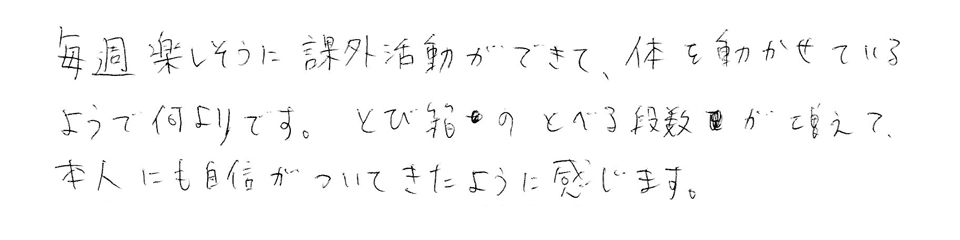 毎週楽しそうに課外活動ができて、体を動かせている
ようで何よりです。とび箱のとべる段数が増えて、
本人にも自信がついてきたように感じます。